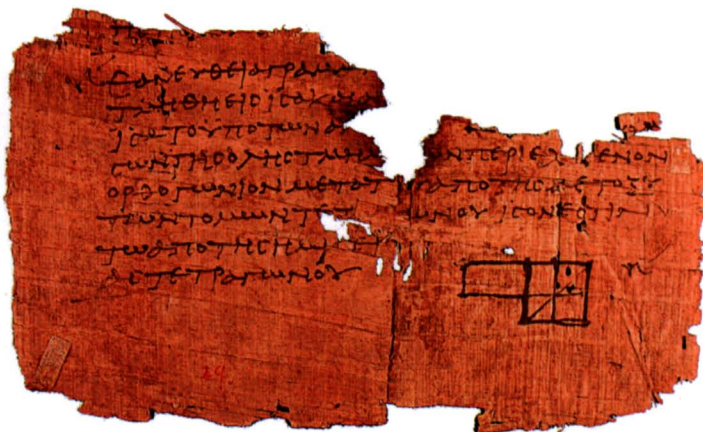 ΕΑΝΕΥΘΕΙΑΓΡΑΜΜ
ΤΜΗΘΗΕΙΣΙΣΑΚΑΙ
ΙΣΑΤΟΥΠΟΤΩΝΑ
ΣΩΝΤΗΣΟΛΗΣΤΜΗ ΩΝΠΕΡΙΕΧ ΜΕΝΟΝ
ΟΡΘΟΓΩΝΙΟΝΜΕΤΑΤ ΑΠΟΤΗΣΜΕΤΟΞΥ
ΤΩΝΤΟΜΩΝΤΕΤ ΩΝΟΥΙΣΟΝΕΣΤΙΝ
ΤΩΑΠΟΤΗΣΗΜΙΣΕΙ
ΑΣΤΕΤΡΑΓΩΝΟΥ
29